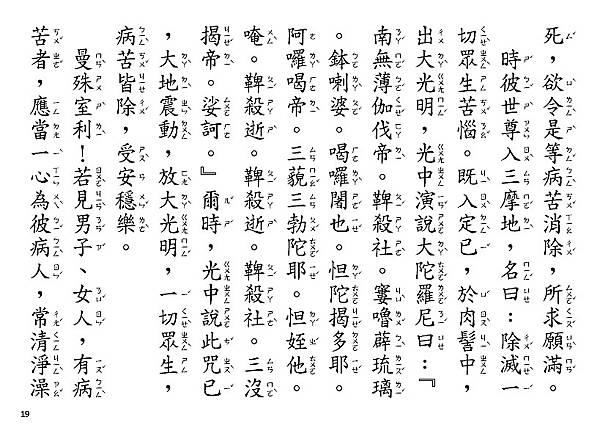 死，欲令是等病苦消除，所求願滿。
時彼世尊入三摩地，名曰：除滅一
切眾生苦惱。既入定已，於肉髻中
出大光明，光中演說大陀羅尼曰：『
南無薄伽伐帝。鞞殺社。窶嚕薜琉璃
。鉢喇婆。喝囉闍也。怛陀揭多耶。
阿囉喝帝。三藐三勃陀耶。怛姪他。
唵。鞞殺逝。鞞殺逝。鞞殺社。三沒
揭帝。娑訶。』爾時，光中說此咒已
，大地震動，放大光明，一切眾生，
病苦皆除，受安穩樂。
曼殊室利！若見男子、女人，有病
苦者，應當一心為彼病人，常清淨澡
19